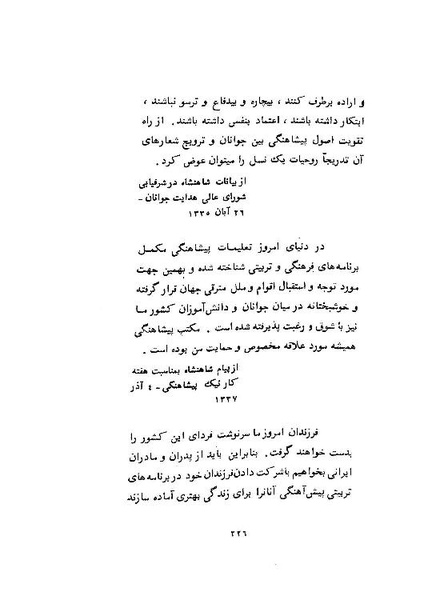 و اراده برطرف کنند ، بیچاره و بیدفاع و ترسو نباشند ،
ابتکار داشته باشند ، اعتماد بنفس داشته باشند . از راه
تقویت اصول پیشاهنگی بین جوانان و ترویج شعارهای
آن تدریجآ روحیات یک نسل را میتوان عوض کرد .
از بیانات شاهنشاه در شرفیابی
شورای عالی هدایت جوانان -
۲۶ آبان ۱۳۳۵
در دنیای امروز تعلیمات پیشاهنگی مکمل
برنامه‌های فرهنگی و تربیتی شناخته شده و بهمین جهت
مورد توجه و استقبال اقوام و ملل مترقی جهان قرار گرفته
و خوشبختانه در میان جوانان و دانش‌آموزان کشور ما
نیز با شوق و رغبت پذیرفته شده است . مکتب پیشاهنگی
همیشه مورد علاقه مخصوص و حمایت من بوده است .
از پیام شاهنشاه بمناسبت هفته
کار نیک پیشاهنگی - ٤ آذر
۱۳۳۷
فرزندان امروز ما سرنوشت فردای این کشور را
بدست خواهند گرفت . بنابراین باید از پدران و مادران
ایرانی بخواهیم با شرکت دادن فرزندان خود در برنامه‌های
تربیتی پیش‌آهنگی آنانرا برای زندگی بهتری آماده سازند
۲۲۶